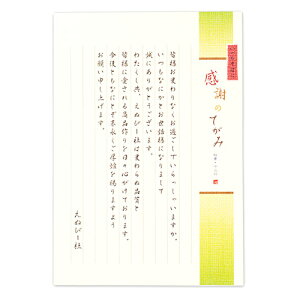 感謝の
てがみ
皆様お変わりなくお過ごしでいらっしゃいますか。
いつもなにかとお世話様になりまして
誠にありがとうございます。
わたくし共、えぬびー社は変わらぬ品質と
皆様に愛される商品作りを日々心がけております。
今後ともなにとぞ末永くご厚情を賜りますよう
お願い申し上げます。
えぬびー社